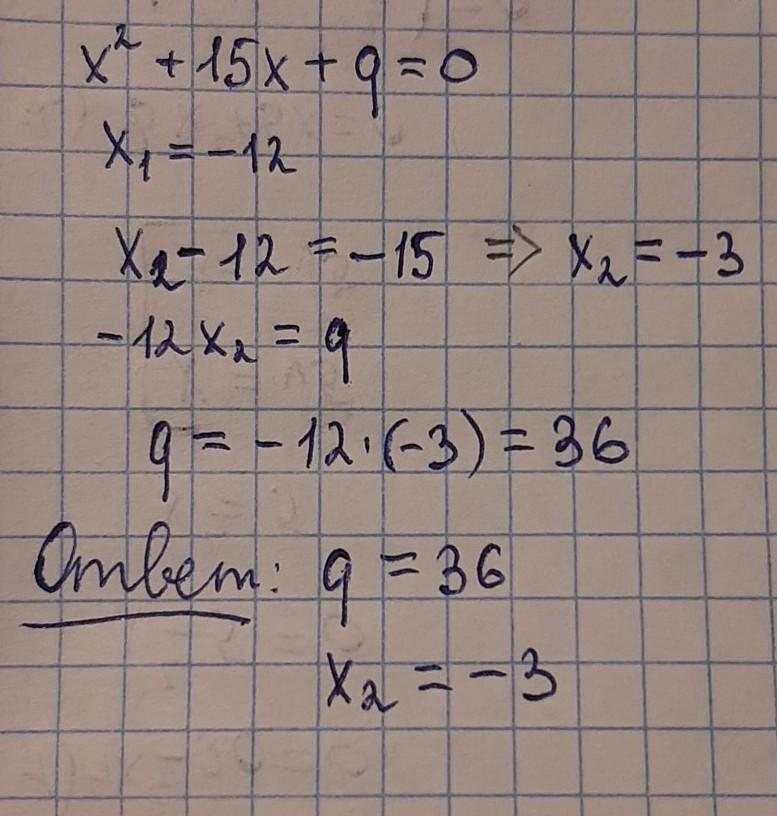 x² + 15x + q = 0
x₁ = -12
x₂ - 12 = -15 => x₂ = -3
-12x₂ = q
q = -12 · (-3) = 36
Ответ: q = 36
x₂ = -3